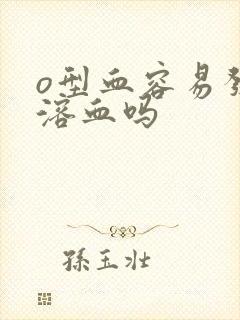 o型血容易
溶血吗
孫玉壯